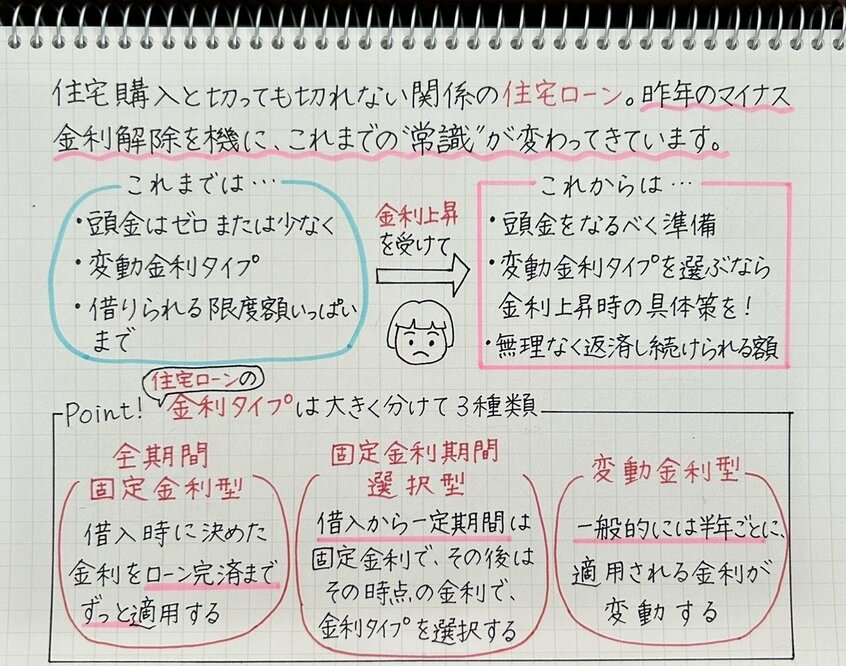 住宅購入と切っても切れない関係の住宅ローン。昨年のマイナス
金利解除を機に、これまでの“常識”が変わってきています。
これまでは…
・頭金はゼロまたは少なく
・変動金利タイプ
・借りられる限度額いっぱい
まで
金利上昇
を受けて
これからは…
・頭金をなるべく準備
・変動金利タイプを選ぶなら
金利上昇時の具体策を!
・無理なく返済し続けられる額
住宅ローンの
Point! 金利タイプは大きく分けて3種類
全期間
固定金利型
借入時に決めた
金利をローン完済まで
ずっと適用する
固定金利期間
選択型
借入から一定期間は
固定金利で、その後は
その時点の金利で、
金利タイプを選択する
変動金利型
一般的には半年ごとに、
適用される金利が
変動する